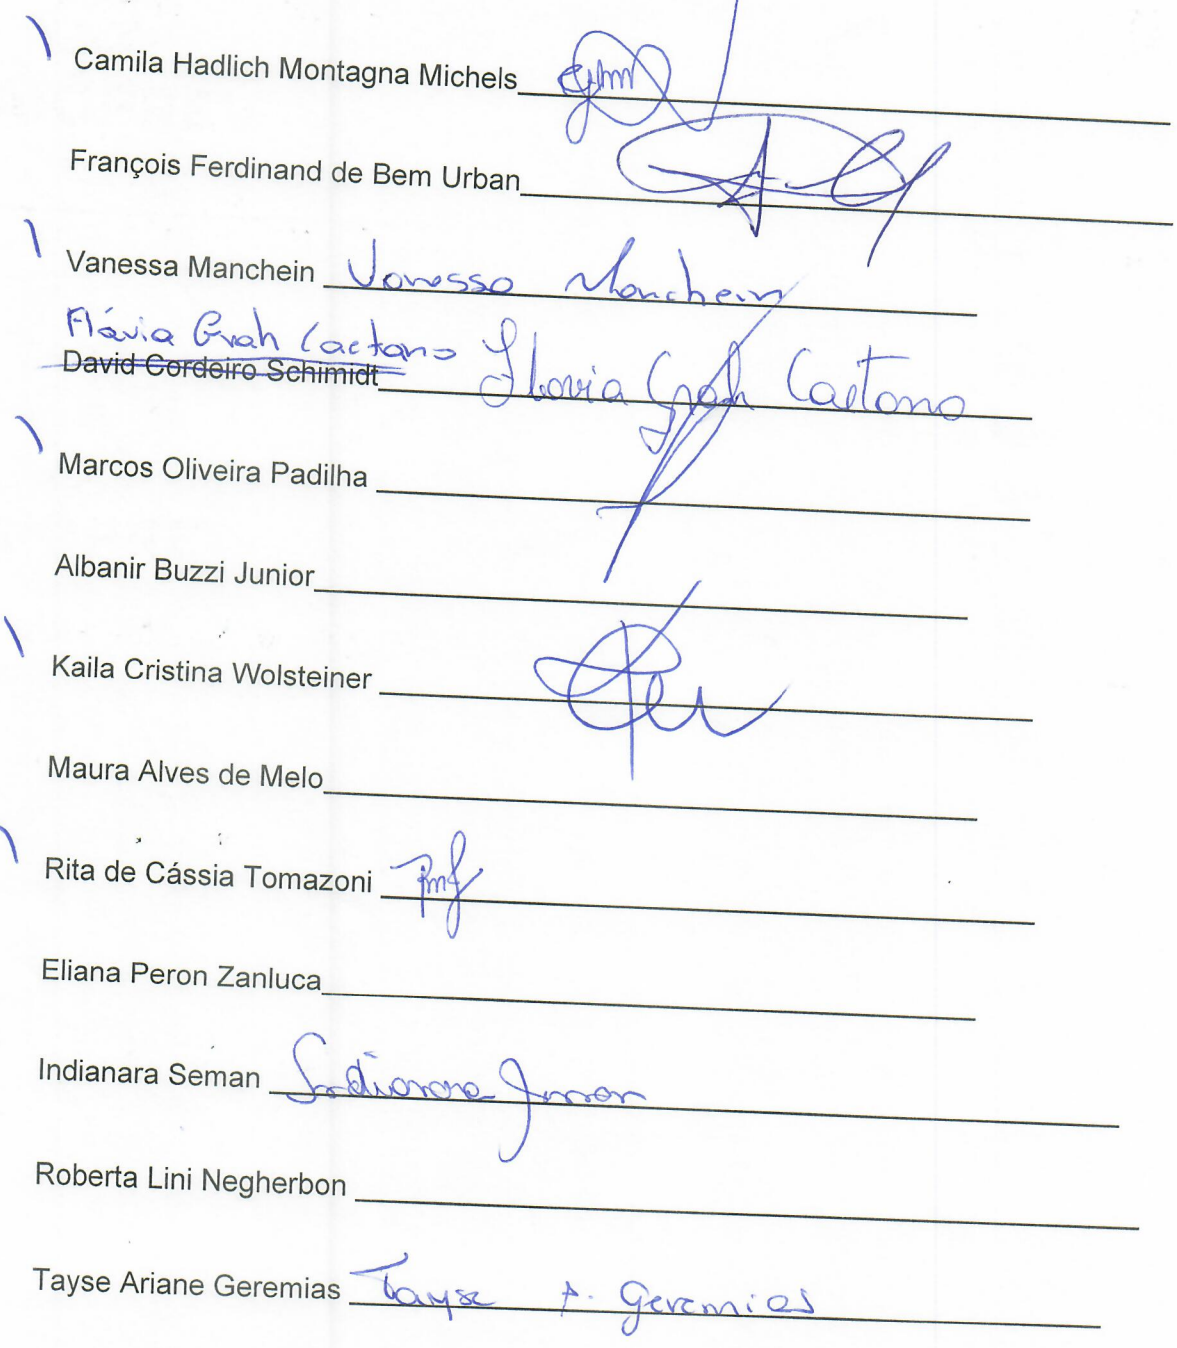 Camila Hadlich Montagna Michels
François Ferdinand de Bem Urban
Vanessa Manchein Vanessa Manchein
Flávia Grah Caetano Flavia Grah Caetano
David Cordeiro Schimidt
Marcos Oliveira Padilha
Albanir Buzzi Junior
Kaila Cristina Wolsteiner
Maura Alves de Melo
Rita de Cássia Tomazoni
Eliana Peron Zanluca
Indianara Seman Indianara Seman
Roberta Lini Negherbon
Tayse Ariane Geremias Tayse A. Geremias